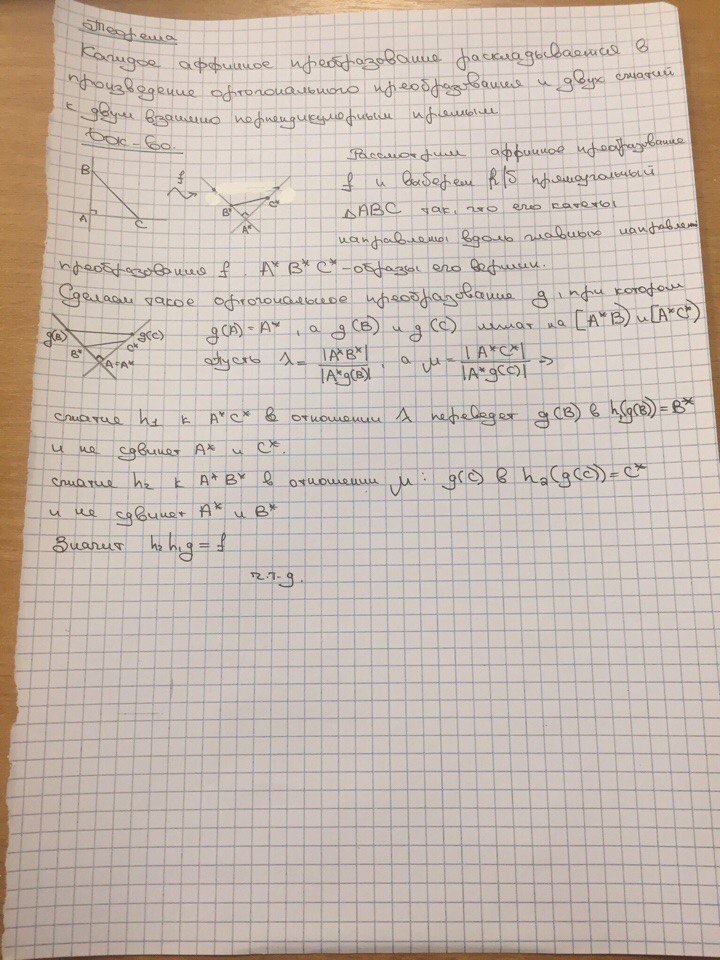 Теорема
Каждое аффинное преобразование раскладывается в
произведение ортогонального преобразования и двух сжатий
к двум взаимно перпендикулярным прямым.
Док-во.
Рассмотрим аффинное преобразование
f и выберем р/б прямоугольный
△ABC так, что его катеты
направлены вдоль главных направлен
B
A
C
f
B*
C*
A*
преобразования f. A* B* C* - образы его вершин.
Сделаем такое ортогональное преобразование g, при котором
g(A) = A*, а g(B) и g(C) лежат на [A*B) и [A*C*)
g(B)
g(C)
B*
C*
A=A*
пусть λ = |A*B*| / |A*g(B)|, а μ = |A*C*| / |A*g(C)| ⇒
сжатие h₁ к A*C* в отношении λ переведет g(B) в h₁(g(B)) = B*
и не сдвинет A* и C*.
сжатие h₂ к A*B* в отношении μ: g(C) в h₂(g(C)) = C*
и не сдвинет A* и B*
Значит h₂h₁g = f
ч.т.д.